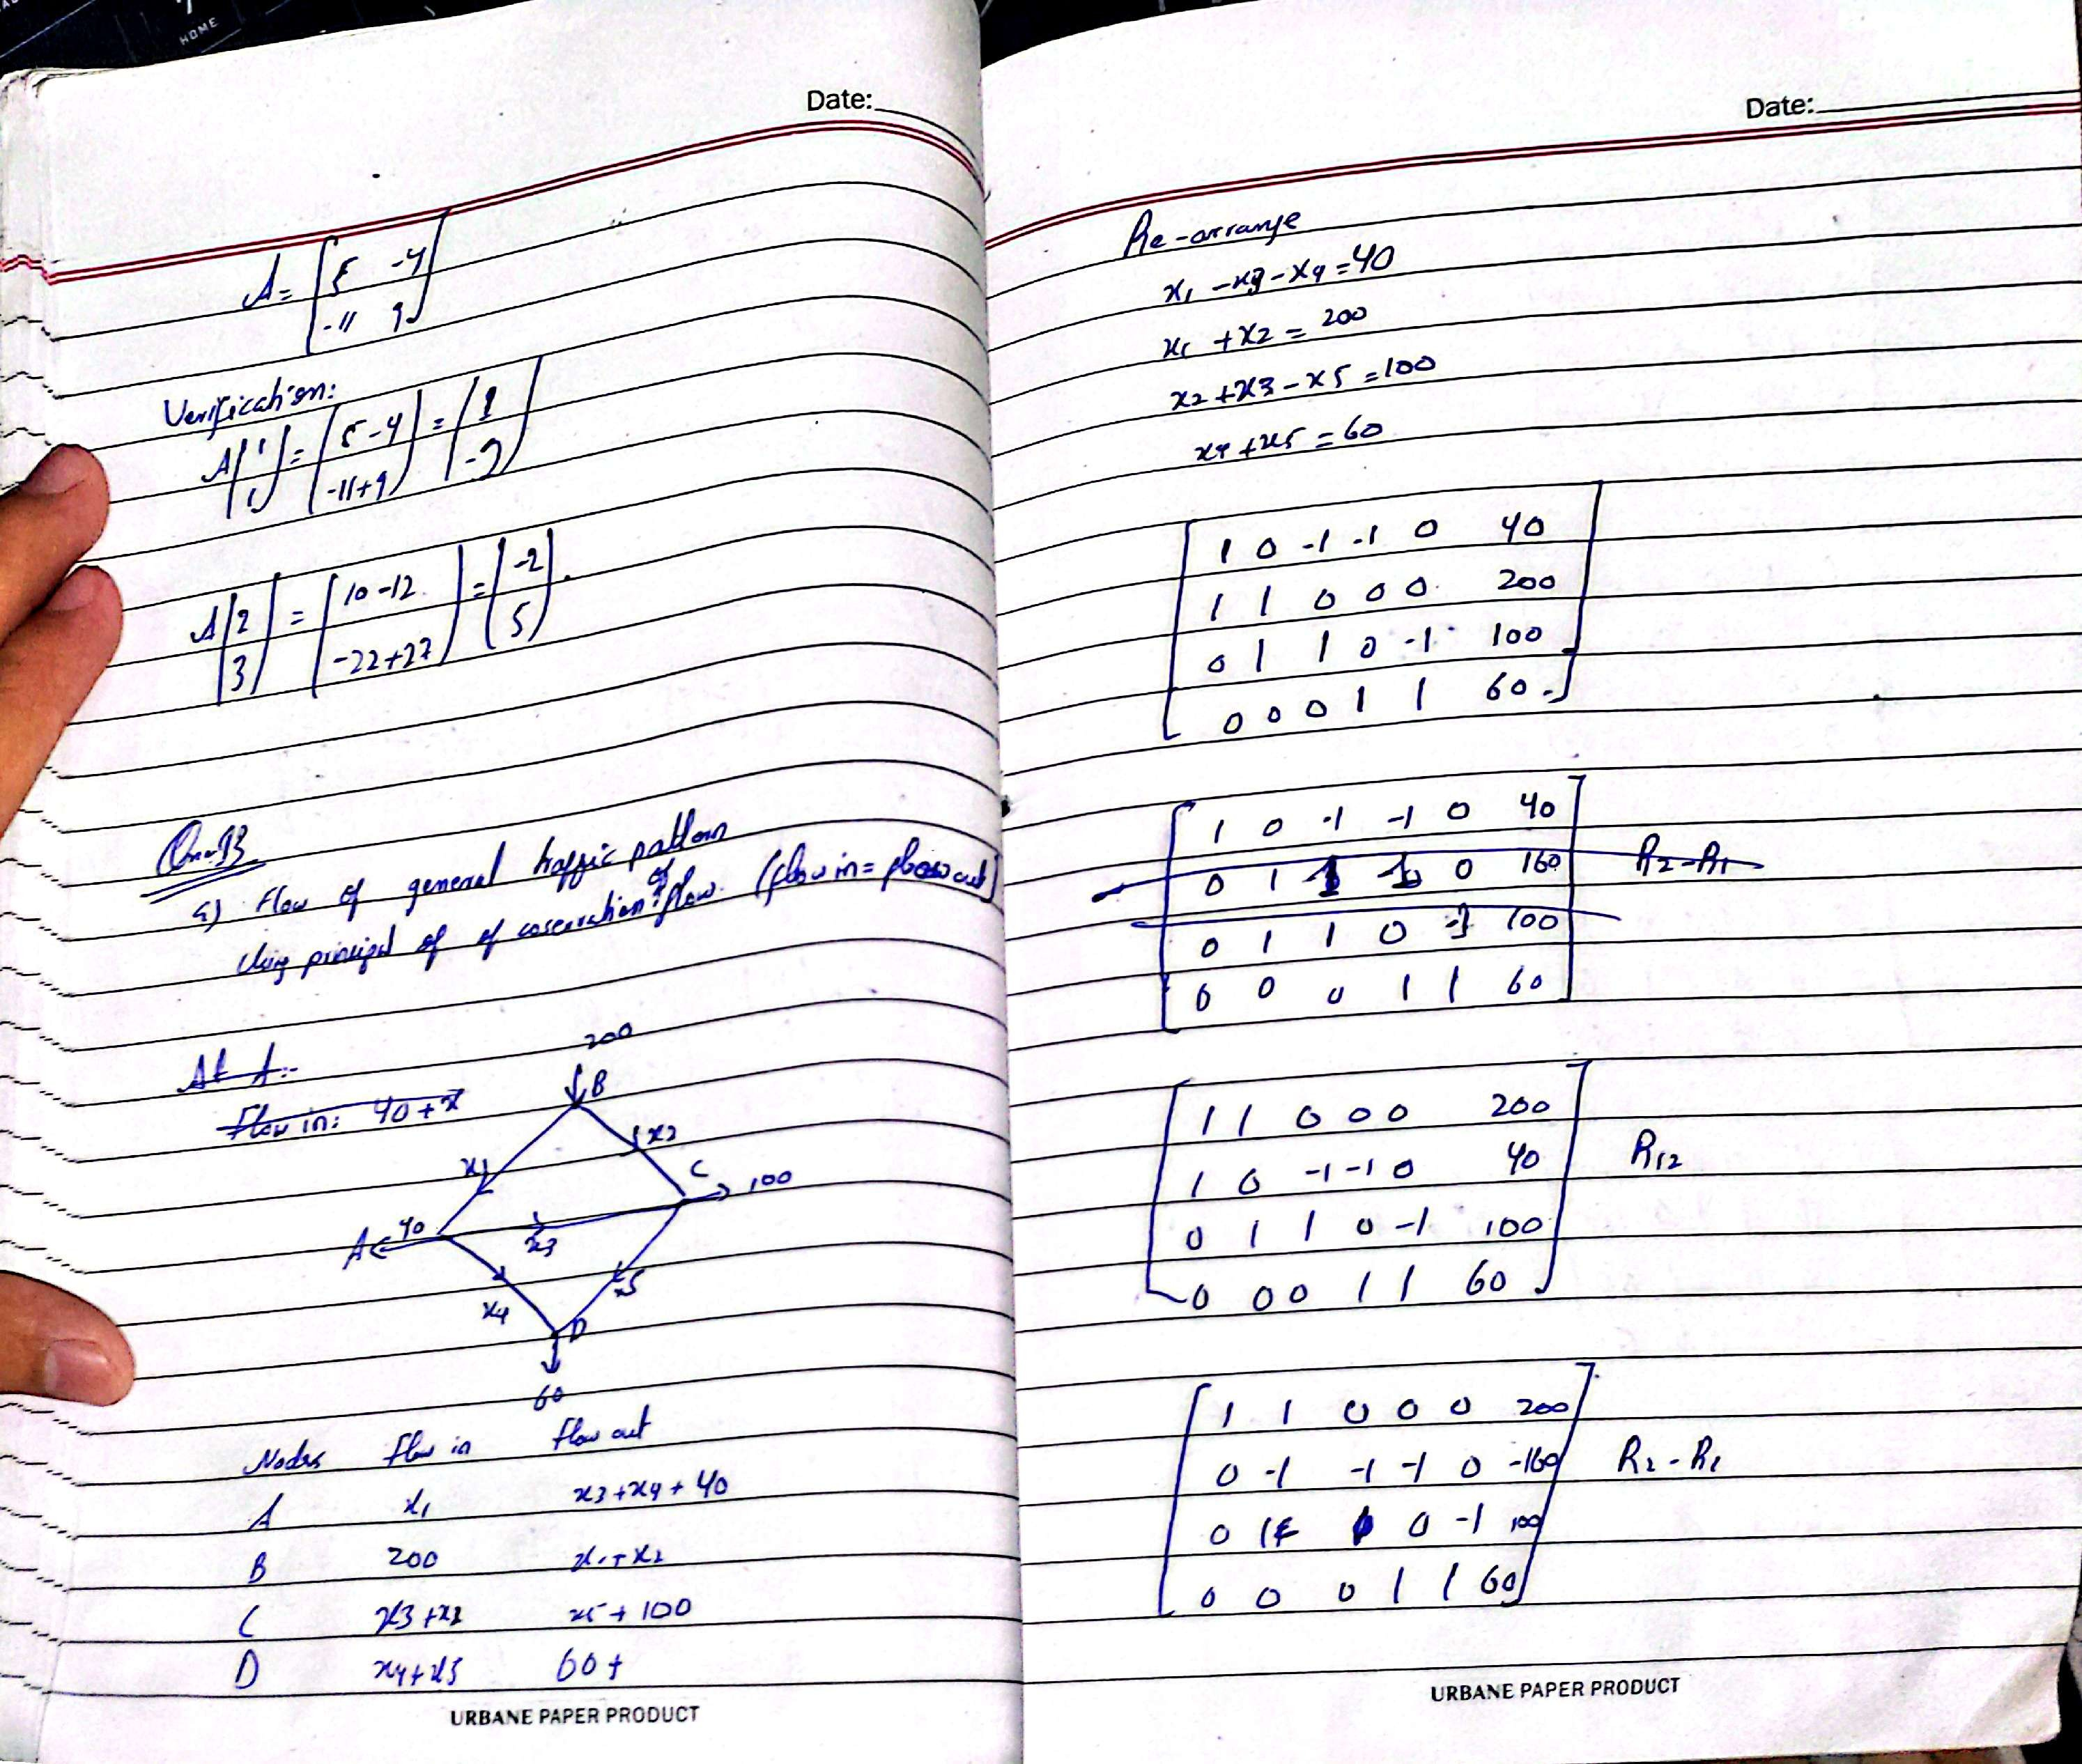 HOME
Date:
A = [5 -4
-11 9]
Verification:
A(1 = (5-4 = (1
1) -11+9) -2)
A[2 = [10-12 = [-2
3] -22+27] 5].
a) Flow of general traffic pattern
Using principal of of coservation of flow. (flow in = flow out)
At A:-
Flow in: 40+x
200
B
x1
x2
C
100
A 40
x3
x4
x5
D
60
Nodes Flow in Flow out
A x1 x3+x4+40
B 200 x1+x2
C x3+x2 x5+100
D x4+x5 60+
URBANE PAPER PRODUCT
Date:
Re-arrange
x1 -x3 -x4 =40
x1 +x2 = 200
x2 +x3 -x5 =100
x4 +x5 = 60
1 0 -1 -1 0 40
1 1 0 0 0 200
0 1 1 0 -1 100
0 0 0 1 1 60
1 0 -1 -1 0 40
0 1 1 1 0 160 R2-R1
0 1 1 0 -1 100
0 0 0 1 1 60
1 1 0 0 0 200
1 0 -1 -1 0 40 R12
0 1 1 0 -1 100
0 0 0 1 1 60
1 1 0 0 0 200
0 -1 -1 -1 0 -160 R2-R1
0 1 0 -1 100
0 0 0 1 1 60
URBANE PAPER PRODUCT